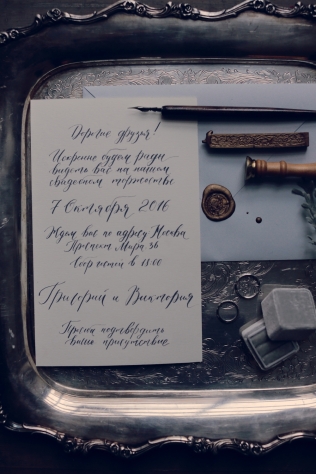 Дорогие друзья!
Искренне будем рады
видеть вас на нашем
свадебном торжестве
7 Октября 2016
Ждем вас по адресу Москва
Проспект Мира 36
Сбор гостей в 15:00
Григорий и Виктория
Просим подтвердить
ваше присутствие